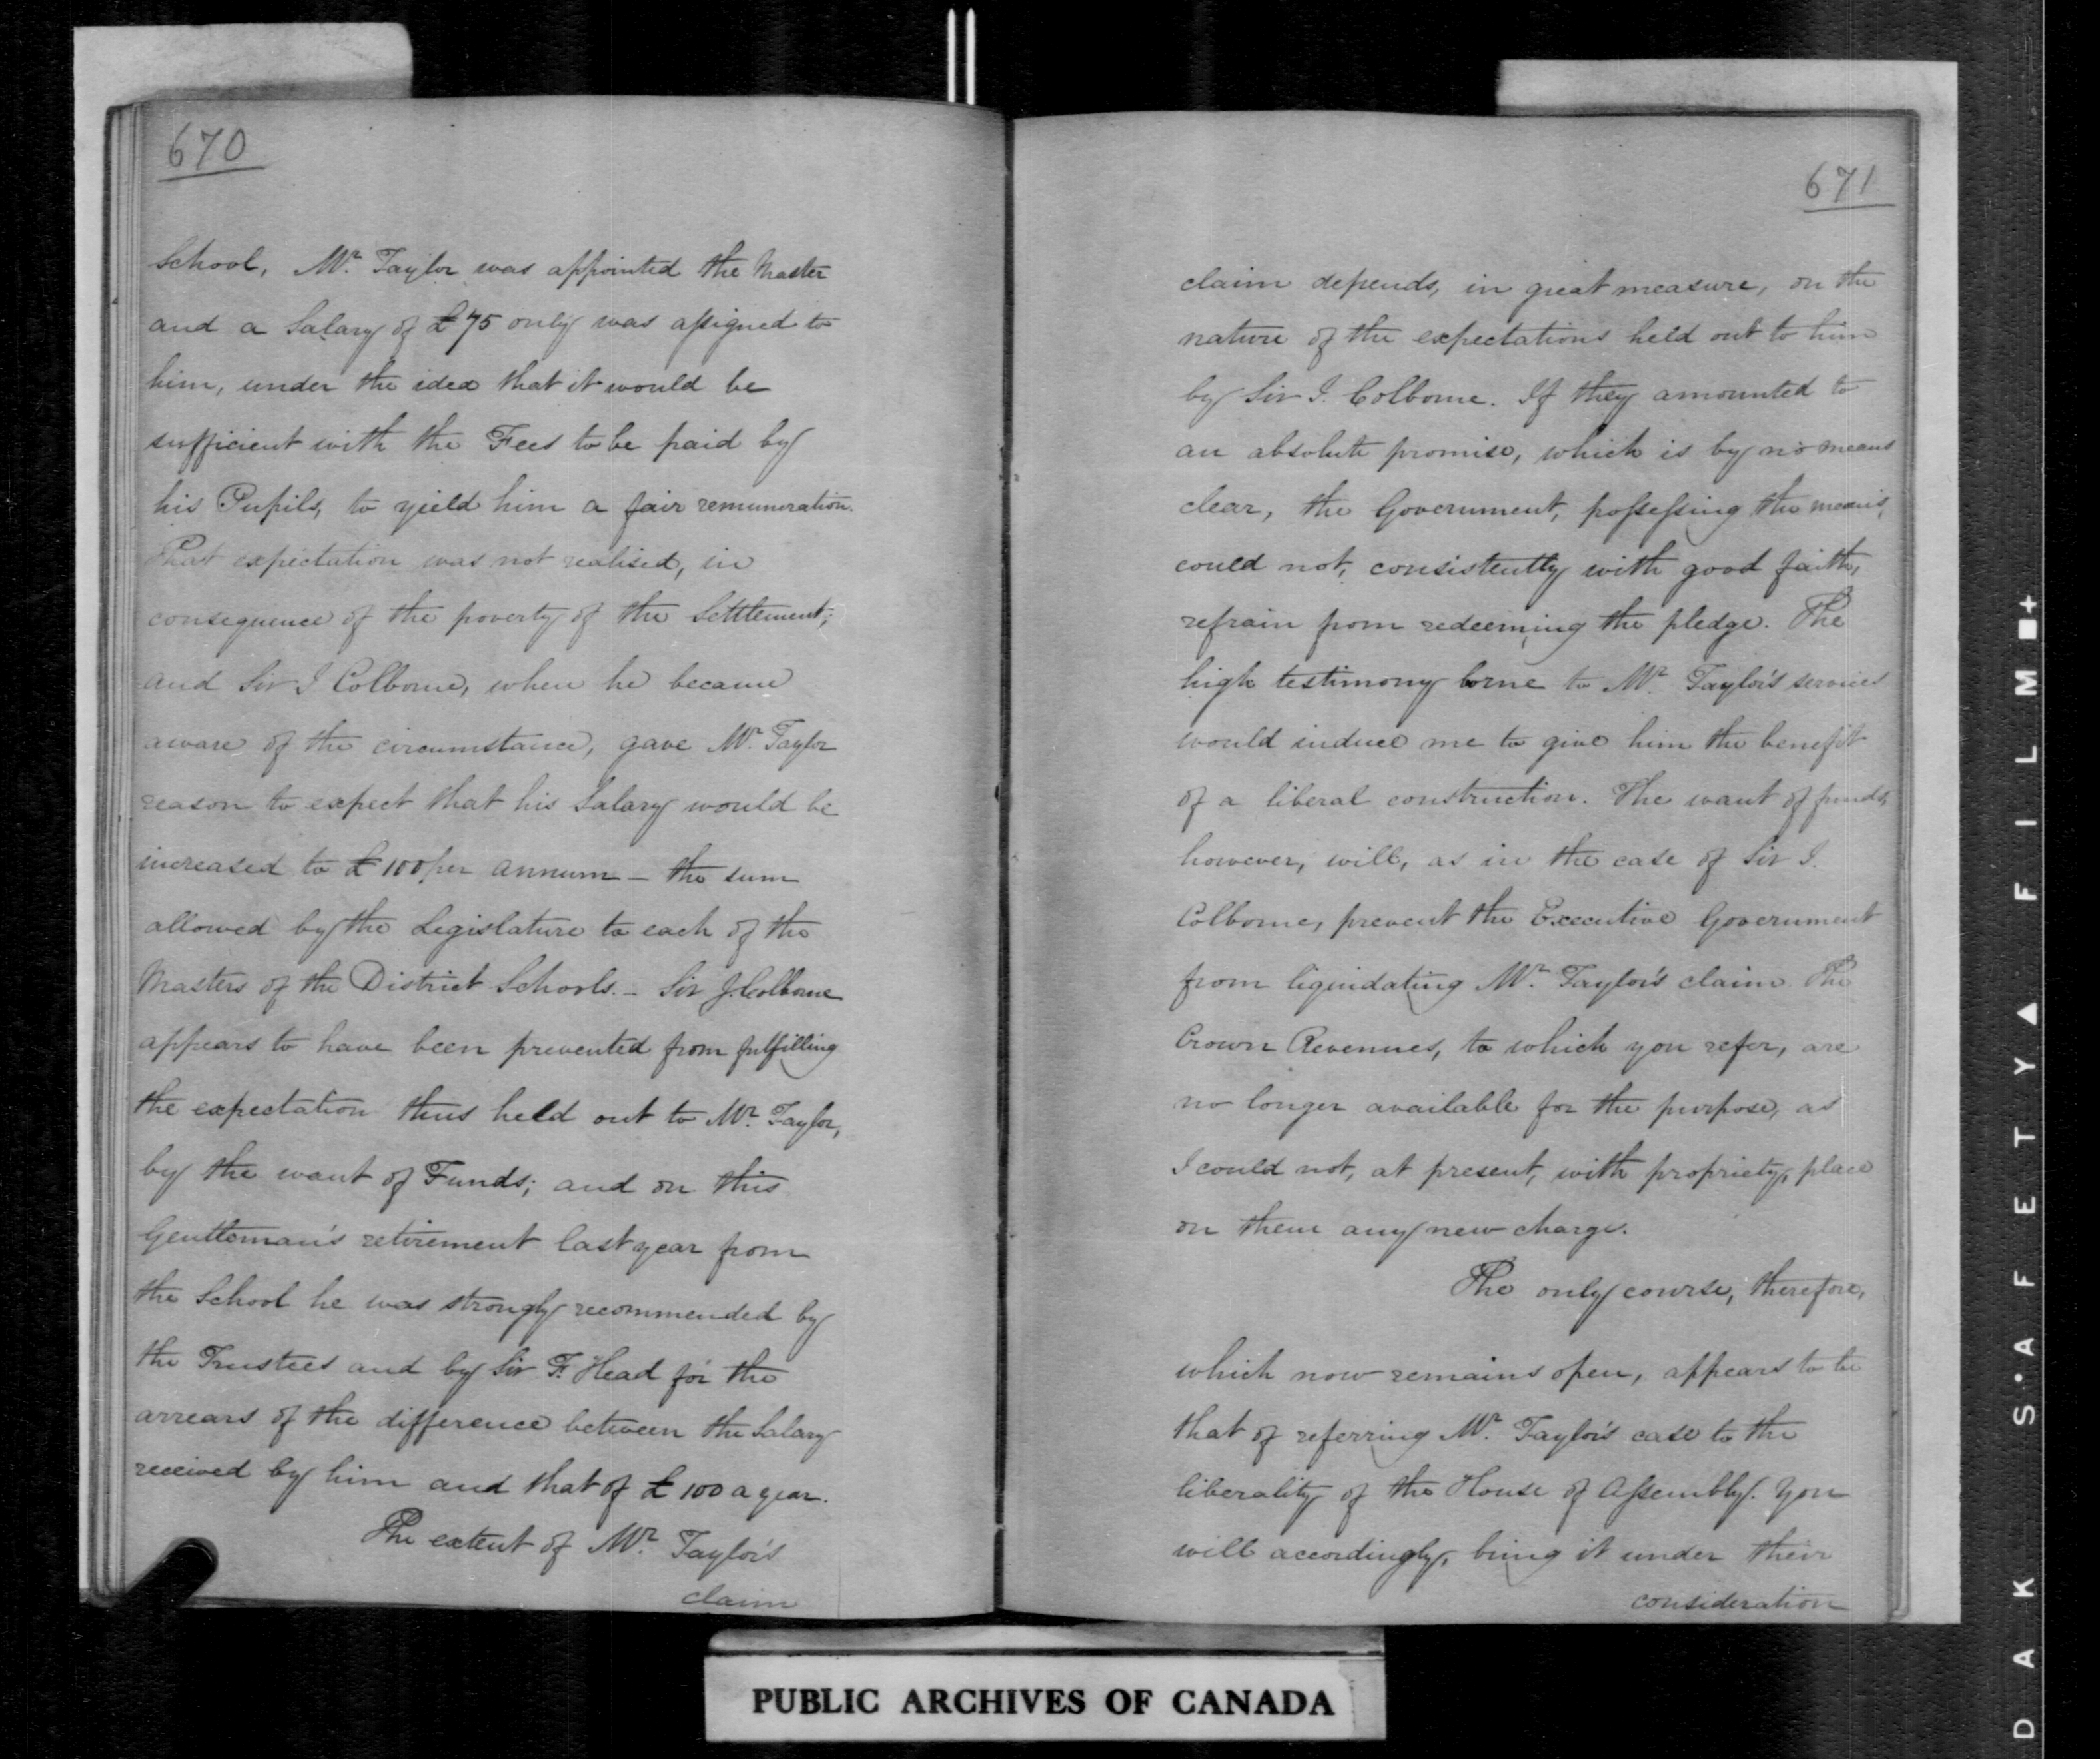 670
School, Mr. Taylor was appointed the Master
and a Salary of £75 only was assigned to
him, under the idea that it would be
sufficient with the Fees to be paid by
his Pupils, to yield him a fair remuneration.
That expectation was not realised, in
consequence of the poverty of the Settlement;
and Sir J Colborne, when he became
aware of the circumstance, gave Mr. Taylor
reason to expect that his Salary would be
increased to £100 per annum – the sum
allowed by the Legislature to each of the
Masters of the District Schools. – Sir J. Colborne
appears to have been prevented from fulfilling
the expectation thus held out to Mr. Taylor,
by the want of Funds; and on this
Gentleman's retirement last year from
the School he was strongly recommended by
the Trustees and by Sir F. Head for the
arrears of the difference between the Salary
received by him and that of £100 a year.
The extent of Mr. Taylor's
claim
671
claim depends, in great measure, on the
nature of the expectations held out to him
by Sir J. Colborne. If they amounted to
an absolute promise, which is by no means
clear, the Government, possessing the means,
could not, consistently with good faith,
refrain from redeeming the pledge. The
high testimony borne to Mr. Taylor's services
would induce me to give him the benefit
of a liberal construction. The want of funds,
however, will, as in the case of Sir J.
Colborne, prevent the Executive Government
from liquidating Mr. Taylor's claim. The
Crown Revenues, to which you refer, are
no longer available for the purpose, as
I could not, at present, with propriety, place
on them any new charge.
The only course, therefore,
which now remains open, appears to be
that of referring Mr. Taylor's case to the
liberality of the House of Assembly. You
will accordingly, bring it under their
consideration
PUBLIC ARCHIVES OF CANADA
D A K S·A F E T Y ▲ F I L M ■ +